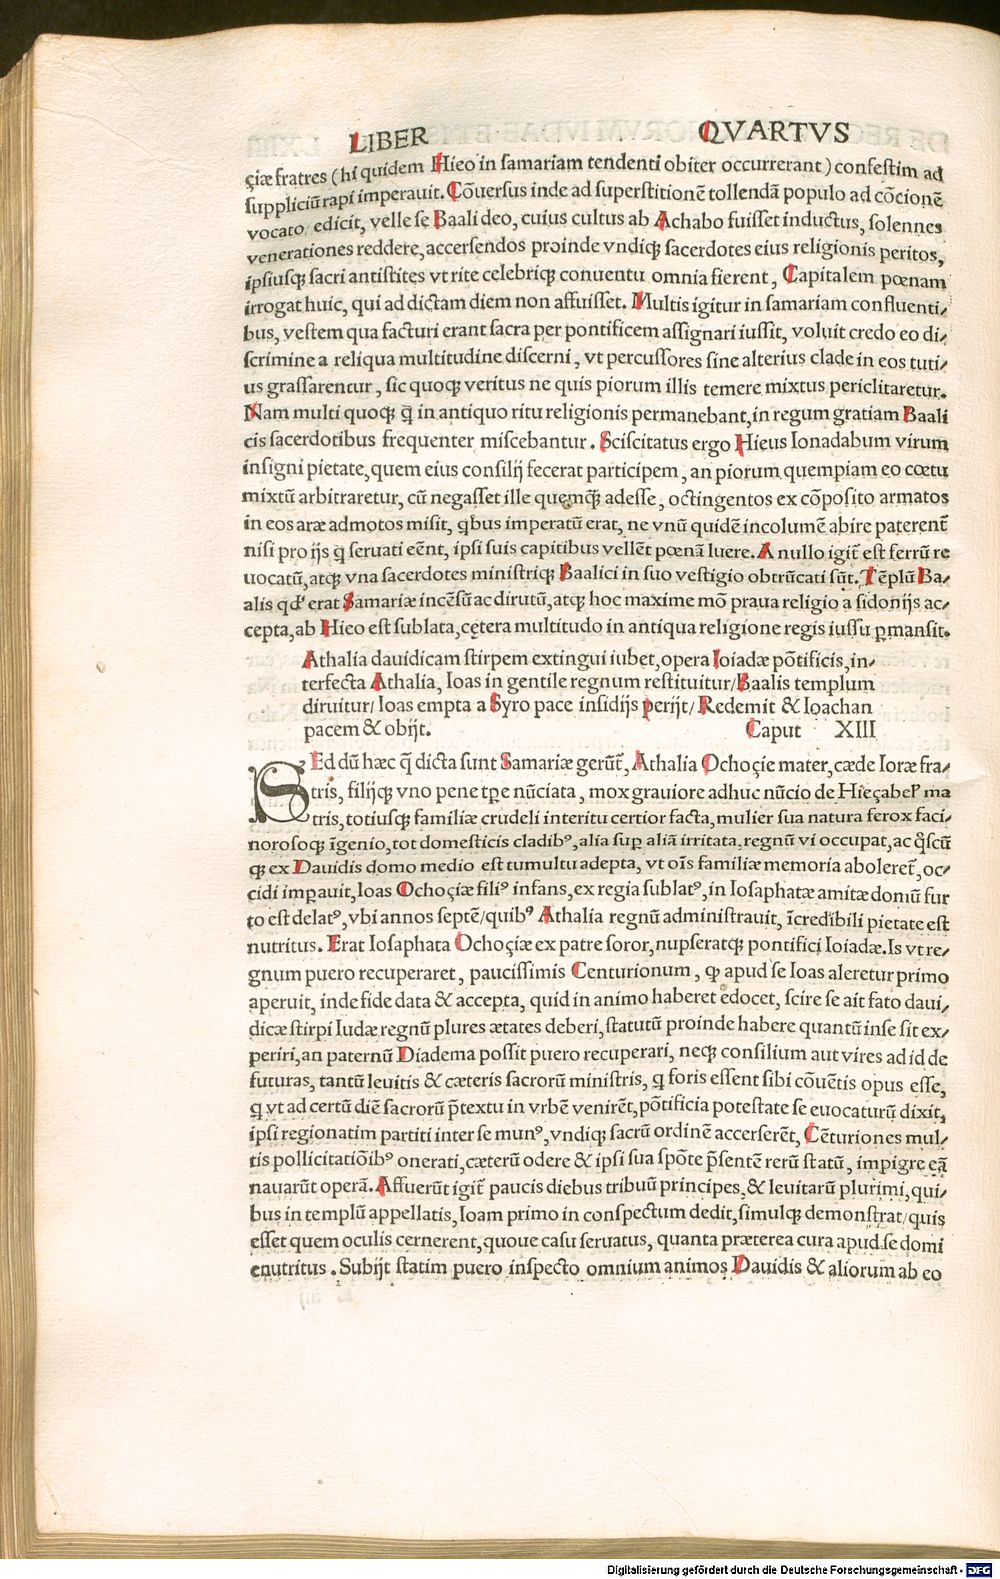 LIBER QVARTVS
çiæ fratres (hi quidem Hieo in samariam tendenti obiter occurrerant) confestim ad
suppliciū rapi imperauit. Cōuersus inde ad superstitionē tollendā populo ad cōcionē
vocato/ edicit, velle se Baali deo, cuius cultus ab Achabo fuisset inductus, solennes
venerationes reddere, accersendos proinde vndiqꝫ sacerdotes eius religionis peritos,
ipsiusqꝫ sacri antistites vt rite celebriqꝫ conuentu omnia fierent, Capitalem pœnam
irrogat huic, qui ad dictam diem non affuisset. Multis igitur in samariam confluenti/
bus, vestem qua facturi erant sacra per pontificem assignari iussit, voluit credo eo di/
scrimine a reliqua multitudine discerni, vt percussores sine alterius clade in eos tuti/
us grassarentur, sic quoqꝫ veritus ne quis piorum illis temere mixtus periclitaretur.
Nam multi quoqꝫ q̄ in antiquo ritu religionis permanebant, in regum gratiam Baali
cis sacerdotibus frequenter miscebantur. Sciscitatus ergo Hieus Ionadabum virum
insigni pietate, quem eius consilij fecerat participem, an piorum quempiam eo cœtu
mixtū arbitraretur, cū negasset ille quemq̄ꝫ adesse, octingentos ex cōposito armatos
in eos aræ admotos misit, qbus imperatū erat, ne vnū quidē incolumē abire paterent̄
nisi pro ijs q̄ seruati eēnt, ipsi suis capitibus vellēt pœnā luere. A nullo igit̄ est ferrū re
uocatū, atqꝫ vna sacerdotes ministriqꝫ Baalici in suo vestigio obtrūcati sūt. Tēplū Ba/
alis qd' erat Samariæ incēsū ac dirutū, atqꝫ hoc maxime mō praua religio a sidonijs ac/
cepta, ab Hieo est sublata, cętera multitudo in antiqua religione regis iussu ꝑmansit.
Athalia dauidicam stirpem extingui iubet, opera Ioiadæ pōtificis, in/
terfecta Athalia, Ioas in gentile regnum restituitur/ Baalis templum
diruitur/ Ioas empta a Syro pace insidijs perijt/ Redemit & Ioachan
pacem & obijt. Caput XIII
SEd dū hæc q̄ dicta sunt Samariæ gerūt̄, Athalia Ochoçie mater, cæde Ioræ fra/
tris, filijqꝫ vno pene tꝑe nūciata, mox grauiore adhuc nūcio de Hieçabel' ma
tris, totiusqꝫ familiæ crudeli interitu certior facta, mulier sua natura ferox faci/
norosoqꝫ īgenio, tot domesticis cladibꝰ, alia suꝑ aliā irritata, regnū vi occupat, ac q̊scū
qꝫ ex Dauidis domo medio est tumultu adepta, vt oīs familiæ memoria aboleret̄, oc/
cidi imꝑauit, Ioas Ochoçiæ filiꝰ infans, ex regia sublatꝰ, in Iosaphatæ amitæ domū fur
to est delatꝰ, vbi annos septē/ quibꝰ Athalia regnū administrauit, īcredibili pietate est
nutritus. Erat Iosaphata Ochoçiæ ex patre soror, nupseratqꝫ pontifici Ioiadæ. Is vt re/
gnum puero recuperaret, paucissimis Centurionum, qꝫ apud se Ioas aleretur primo
aperuit, inde fide data & accepta, quid in animo haberet edocet, scire se ait fato daui/
dicæ stirpi Iudæ regnū plures ætates deberi, statutū proinde habere quantū in se sit ex/
periri, an paternū Diadema possit puero recuperari, neqꝫ consilium aut vires ad id de
futuras, tantū leuitis & cæteris sacrorū ministris, q foris essent sibi cōuētis opus esse,
q vt ad certū diē sacrorū p̄textu in vrbē venirēt, pōtificia potestate se euocaturū dixit,
ipsi regionatim partiti inter se munꝰ, vndiqꝫ sacrū ordinē accerserēt, Cēturiones mul/
tis pollicitatiōibꝰ onerati, cæterū odere & ipsi sua spōte p̄sentē rerū statū, impigre eā
nauarūt operā. Affuerūt igit̄ paucis diebus tribuū principes, & leuitarū plurimi, qui/
bus in templū appellatis, Ioam primo in conspectum dedit, simulqꝫ demonstrat/ quis
esset quem oculis cernerent, quoue casu seruatus, quanta præterea cura apud se domi
enutritus. Subijt statim puero inspecto omnium animos Dauidis & aliorum ab eo
Digitalisierung gefördert durch die Deutsche Forschungsgemeinschaft - DFG